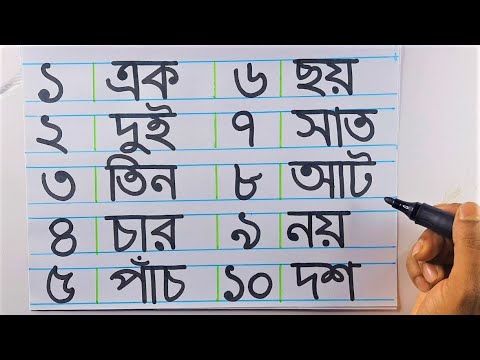 ১ এক ৬ ছয়
২ দুই ৭ সাত
৩ তিন ৮ আট
৪ চার ৯ নয়
৫ পাঁচ ১০ দশ